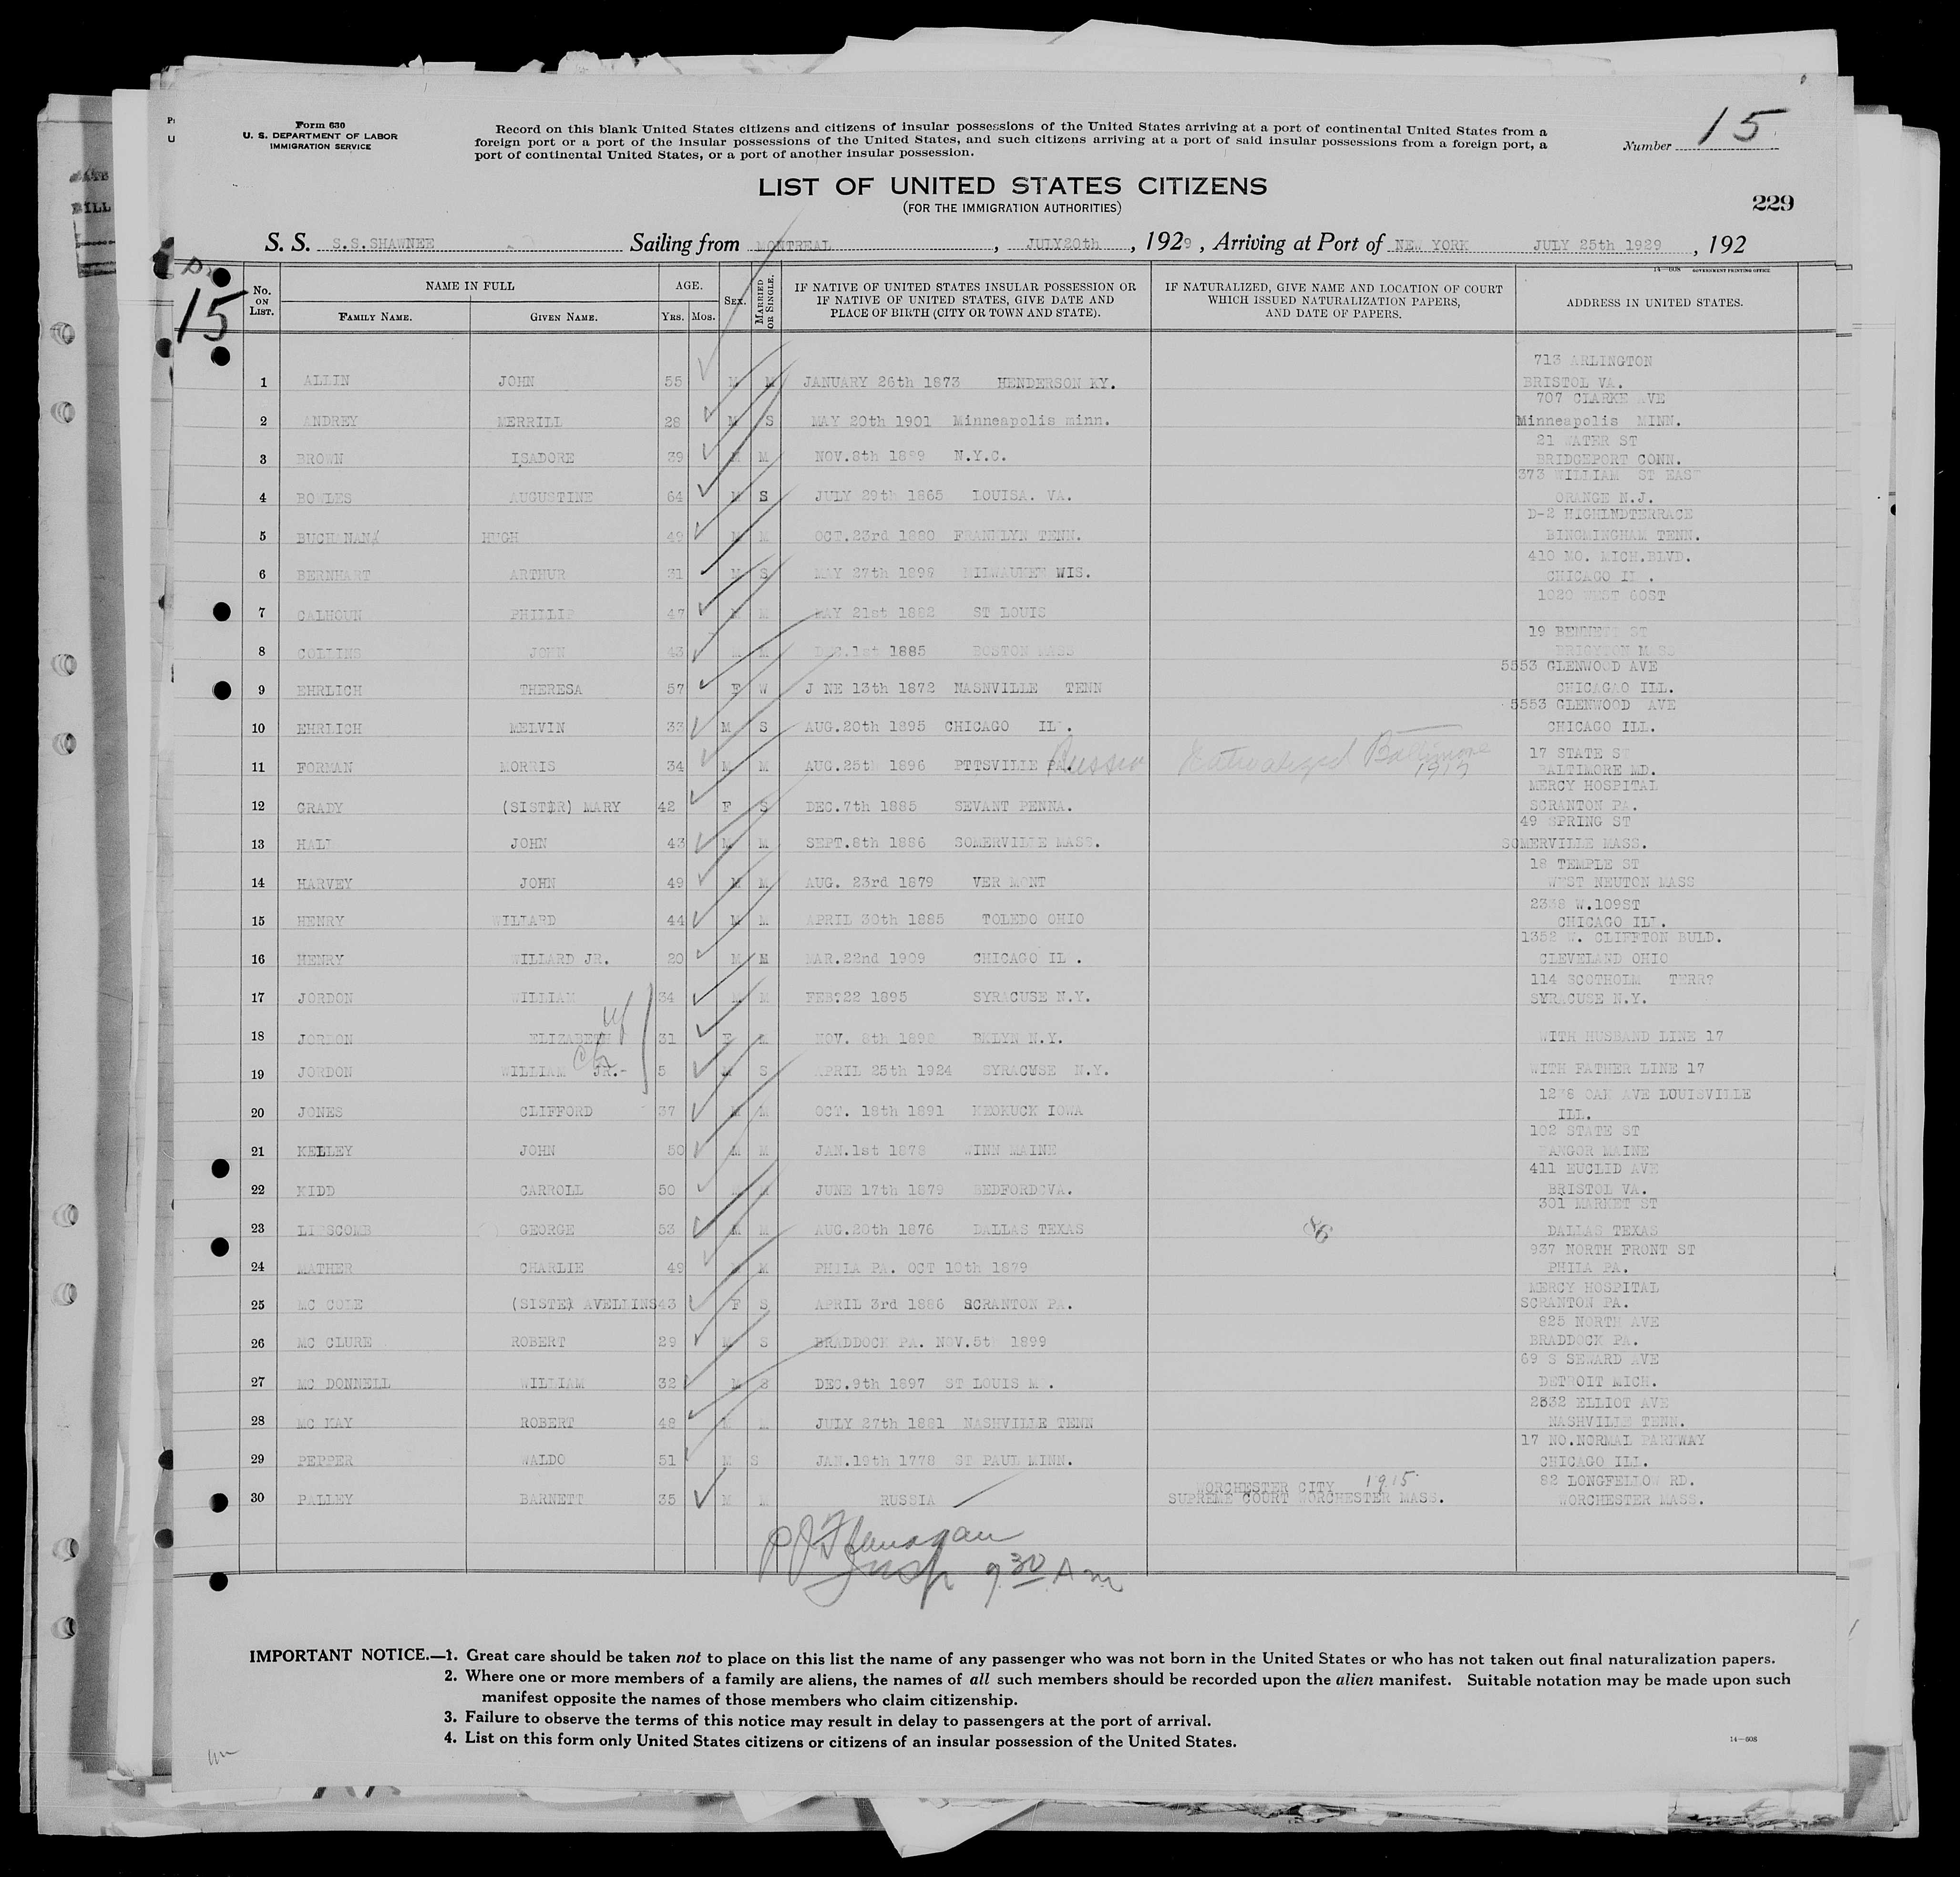 Form 630
U. S. DEPARTMENT OF LABOR
IMMIGRATION SERVICE
Record on this blank United States citizens and citizens of insular possessions of the United States arriving at a port of continental United States from a
foreign port or a port of the insular possessions of the United States, and such citizens arriving at a port of said insular possessions from a foreign port, a
port of continental United States, or a port of another insular possession.
Number 15
LIST OF UNITED STATES CITIZENS
(FOR THE IMMIGRATION AUTHORITIES)
229
S. S. S.S.SHAWNEE Sailing from MONTREAL, JULY20th, 1929, Arriving at Port of NEW YORK JULY 25th 1929, 192
14—608 GOVERNMENT PRINTING OFFICE
15
No. ON LIST. NAME IN FULL FAMILY NAME. GIVEN NAME. AGE. YRS. MOS. SEX. MARRIED OR SINGLE. IF NATIVE OF UNITED STATES INSULAR POSSESSION OR IF NATIVE OF UNITED STATES, GIVE DATE AND PLACE OF BIRTH (CITY OR TOWN AND STATE). IF NATURALIZED, GIVE NAME AND LOCATION OF COURT WHICH ISSUED NATURALIZATION PAPERS, AND DATE OF PAPERS. ADDRESS IN UNITED STATES.
713 ARLINGTON
1 ALLIN JOHN 55 M M JANUARY 26th 1873 HENDERSON KY. BRISTOL VA.
707 CLARKE AVE
2 ANDREY MERRILL 28 M S MAY 20th 1901 Minneapolis minn. Minneapolis MINN.
21 WATER ST
3 BROWN ISADORE 39 M M NOV.8th 1889 N.Y.C. BRIDGEPORT CONN.
373 WILLIAM ST EAST
4 BOWLES AUGUSTINE 64 M S JULY 29th 1865 LOUISA. VA. ORANGE N.J.
D-2 HIGHLNDTERRACE
5 BUCHANAN HUGH 49 M M OCT.23rd 1880 FRANKLYN TENN. BINGMINGHAM TENN.
410 NO. MICH.BLVD.
6 BERNHART ARTHUR 31 M S MAY 27th 1898 MILWAUKEE WIS. CHICAGO IL.
1020 WEST 60ST
7 CALHOUN PHILLIP 47 M M MAY 21st 1882 ST LOUIS
19 BENNETT ST
8 COLLINS JOHN 43 M M DEC.1st 1885 BOSTON MASS BRIGYTON MASS
5553 GLENWOOD AVE
9 EHRLICH THERESA 57 F W J NE 13th 1872 NASNVILLE TENN CHICAGAO ILL.
5553 GLENWOOD AVE
10 EHRLICH MELVIN 33 M S AUG.20th 1895 CHICAGO IL. CHICAGO ILL.
17 STATE ST
11 FORMAN MORRIS 34 M M AUG.25th 1896 PTTSVILLE PA. Russia Naturalized Baltimore 1917 BALTIMORE MD.
MERCY HOSPITAL
12 GRADY (SISTER) MARY 42 F S DEC.7th 1885 SEVANT PENNA. SCRANTON PA.
49 SPRING ST
13 HALL JOHN 43 M M SEPT.8th 1886 SOMERVILLE MASS. SOMERVILLE MASS.
18 TEMPLE ST
14 HARVEY JOHN 49 M M AUG. 23rd 1879 VER MONT WEST NEUTON MASS
W.109ST
15 HENRY WILLARD 44 M M APRIL 30th 1885 TOLEDO OHIO CHICAGO ILL.
1352 W. CLIFFTON BULD.
16 HENRY WILLARD JR. 20 M M MAR.22nd 1909 CHICAGO IL . CLEVELAND OHIO
114 SCOTHOLM TERR?
17 JORDON WILLIAM 34 M M FEB:22 1895 SYRACUSE N.Y. SYRACUSE N.Y.
18 JORDON ELIZABETH wf 31 F M NOV. 8th 1898 BKLYN N.Y. WITH HUSBAND LINE 17
19 JORDON WILLIAM JR.- ch 5 M S APRIL 25th 1924 SYRACUSE N.Y. WITH FATHER LINE 17
OAK AVE LOUISVILLE
20 JONES CLIFFORD 37 M M OCT. 18th 1891 KEOKUCK IOWA ILL.
102 STATE ST
21 KELLEY JOHN 50 M M JAN.1st 1878 WINN MAINE BANGOR MAINE
411 EUCLID AVE
22 KIDD CARROLL 50 M M JUNE 17th 1879 BEDFORDCVA. BRISTOL VA.
301 MARKET ST
23 LIPSCOMB GEORGE 53 M M AUG.20th 1876 DALLAS TEXAS 86 DALLAS TEXAS
937 NORTH FRONT ST
24 MATHER CHARLIE 49 M M PHILA PA. OCT 10th 1879 PHILA PA.
MERCY HOSPITAL
25 MC COLE (SISTE) AVELLINS 43 F S APRIL 3rd 1886 SCRANTON PA. SCRANTON PA.
825 NORTH AVE
26 MC CLURE ROBERT 29 M S BRADDOCK PA. NOV.5th 1899 BRADDOCK PA.
69 S SEWARD AVE
27 MC DONNELL WILLIAM 32 M S DEC.9th 1897 ST LOUIS MO. DETROIT MICH.
2532 ELLIOT AVE
28 MC KAY ROBERT 48 M M JULY 27th 1881 NASHVILLE TENN NASHVILLE TENN.
17 NO.NORMAL PARKWAY
29 PEPPER WALDO 51 M S JAN.19th 1778 ST PAUL MINN. CHICAGO ILL.
WORCHESTER CITY 1915 82 LONGFELLOW RD.
30 PALLEY BARNETT 35 M M RUSSIA SUPREME COURT WORCHESTER MASS. WORCHESTER MASS.
P J Flanagan
Insp 9 30 AM
IMPORTANT NOTICE.—1. Great care should be taken not to place on this list the name of any passenger who was not born in the United States or who has not taken out final naturalization papers.
2. Where one or more members of a family are aliens, the names of all such members should be recorded upon the alien manifest. Suitable notation may be made upon such
manifest opposite the names of those members who claim citizenship.
3. Failure to observe the terms of this notice may result in delay to passengers at the port of arrival.
4. List on this form only United States citizens or citizens of an insular possession of the United States.
14—608